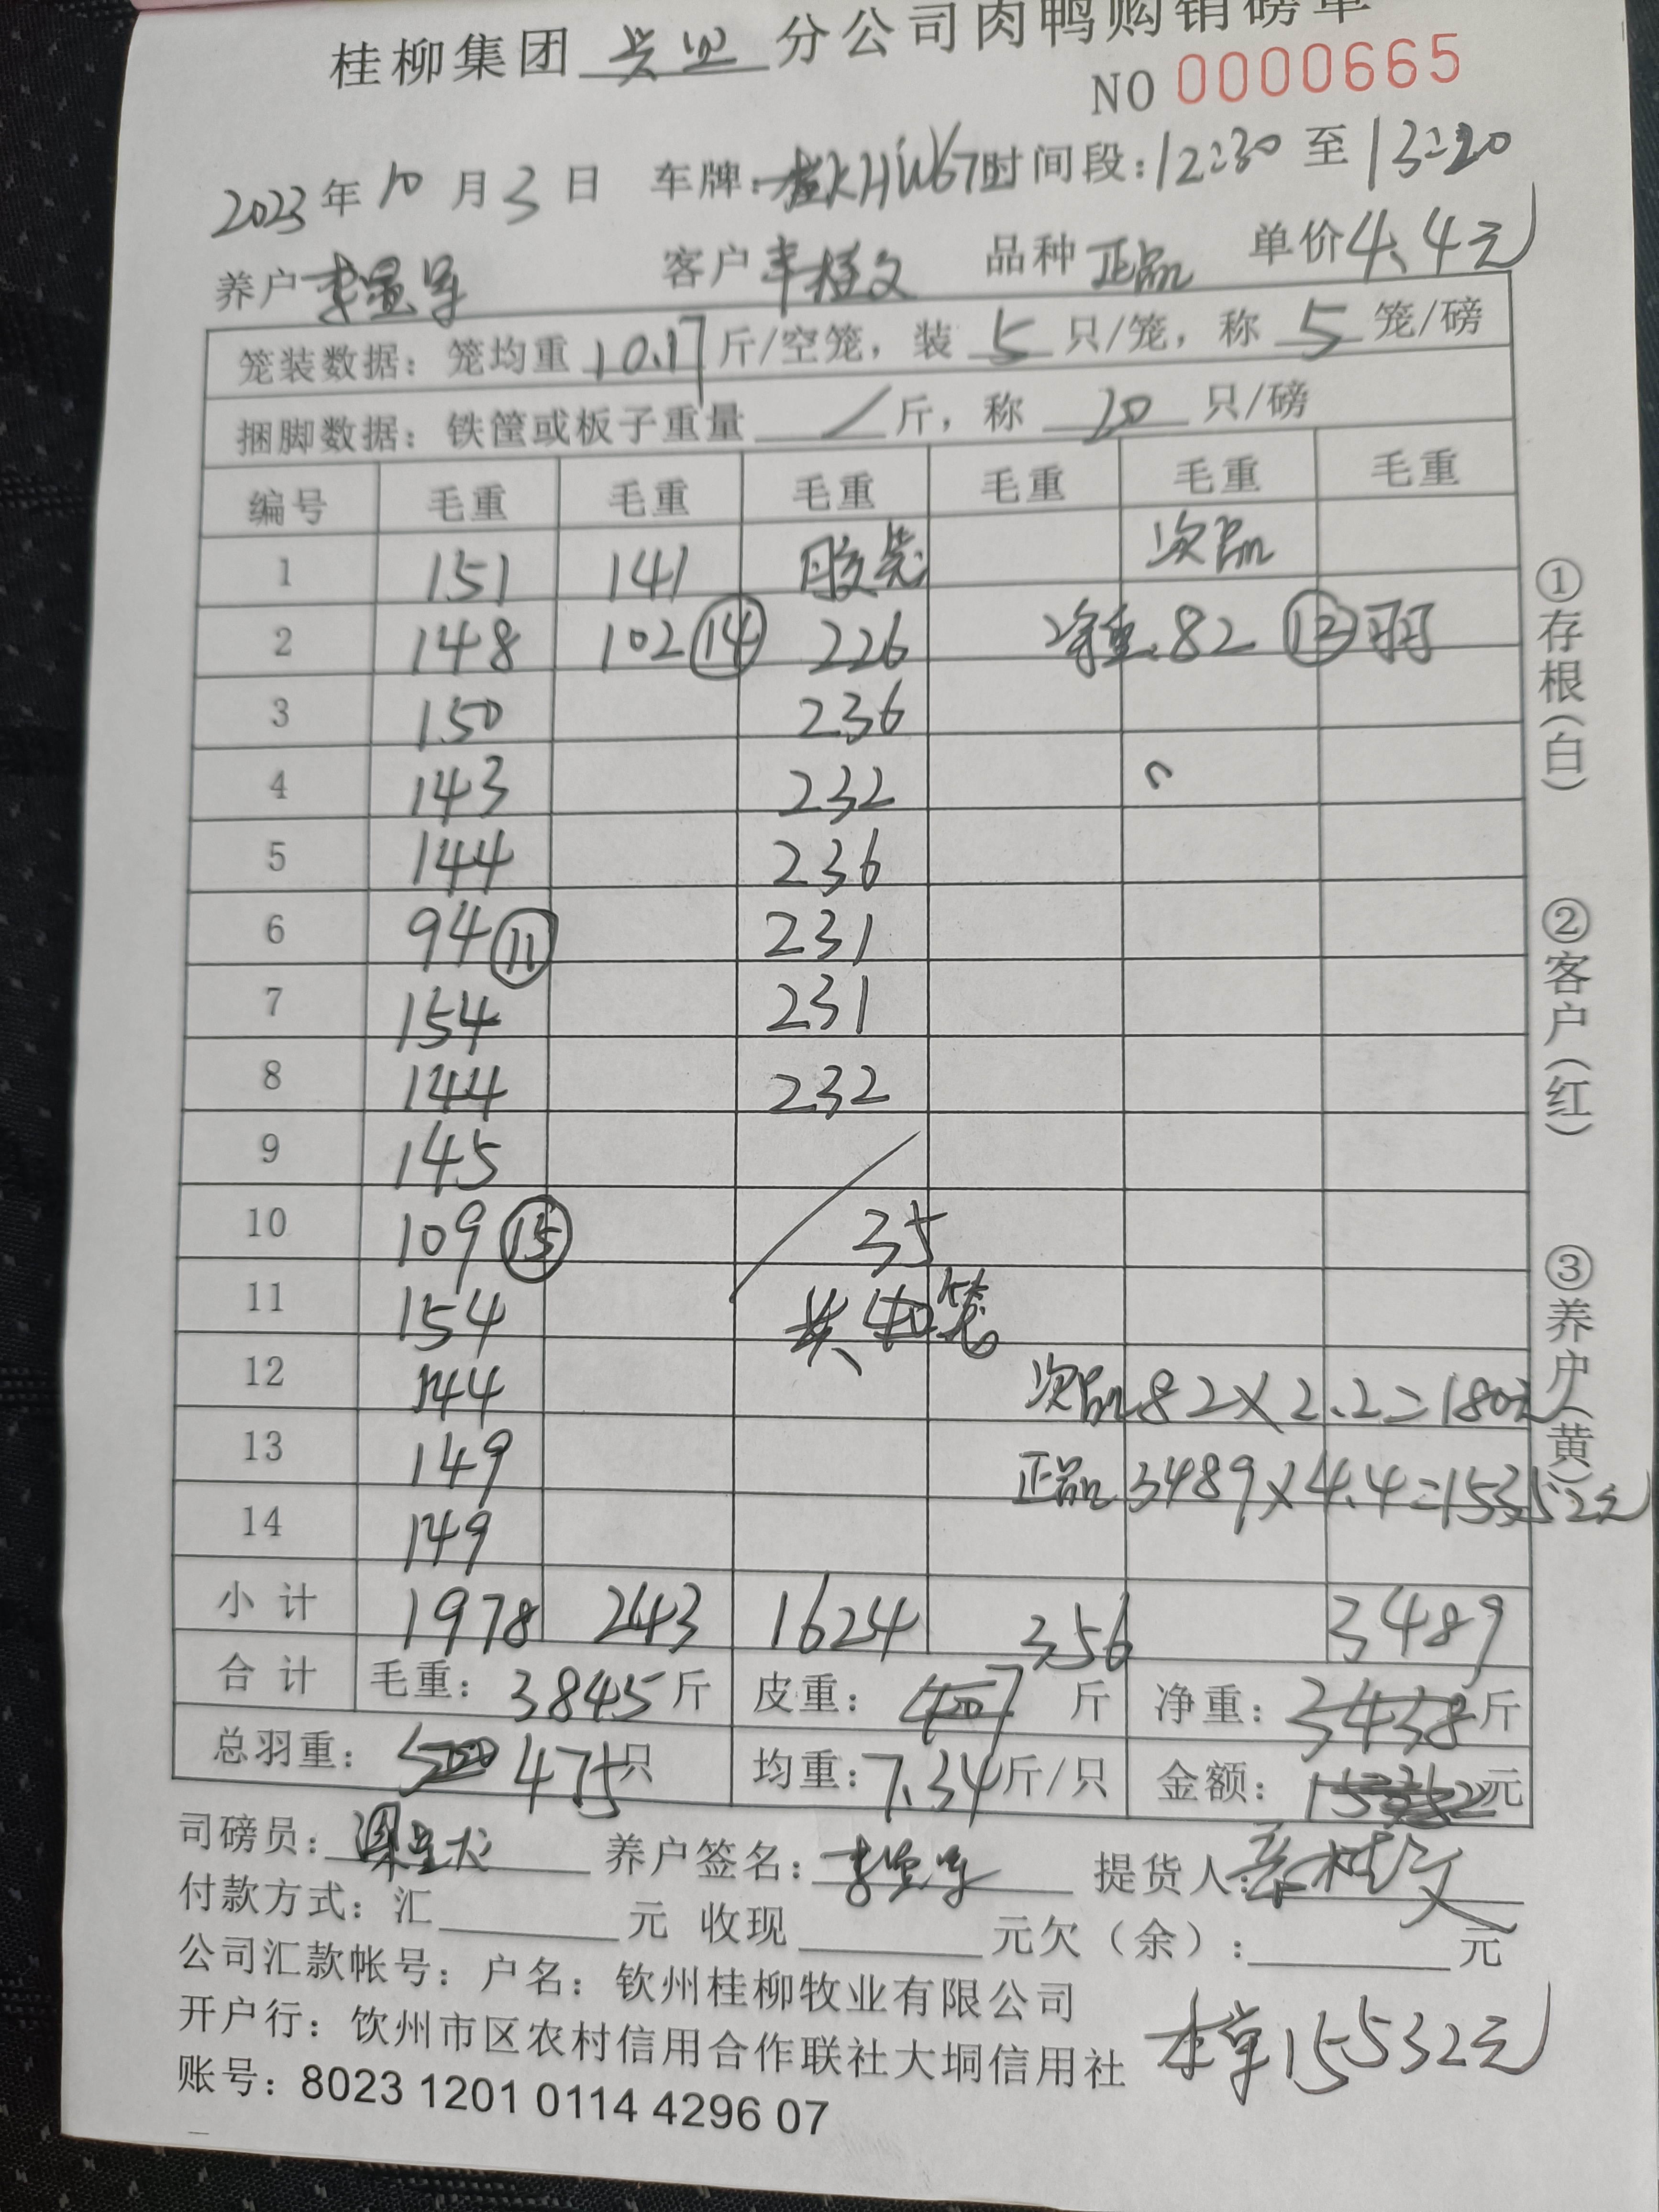 桂柳集团 分公司肉鸭购销磅单
NO 0000665
2023年10月3日 车牌: 时间段:12:30至13:20
养户 客户 品种 正品 单价4.4元
笼装数据:笼均重10.17斤/空笼,装5只/笼,称5笼/磅
捆脚数据:铁筐或板子重量/斤,称20只/磅
编号 毛重 毛重 毛重 毛重 毛重 毛重
1 151 141 胶笼 次品
2 148 102 ⑭ 226 净重.82 ⑬羽
3 150 236
4 143 232
5 144 236
6 94 ⑪ 231
7 154 231
8 144 232
9 145
10 109 ⑮ 35
11 154 共40笼
12 144 次品82×2.2=180元
13 149 正品3489×4.4=15352元
14 149
小计 1978 243 1624 356 3489
合计 毛重:3845斤 皮重:407斤 净重:3438斤
总羽重:500 475只 均重:7.34斤/只 金额: 元
司磅员: 养户签名: 提货人:
付款方式:汇 元 收现 元欠(余): 元
公司汇款帐号:户名:钦州桂柳牧业有限公司
开户行:饮州市区农村信用合作联社大垌信用社
账号:8023 1201 0114 4296 07
本单15532元
①存根(白) ②客户(红) ③养户(黄)